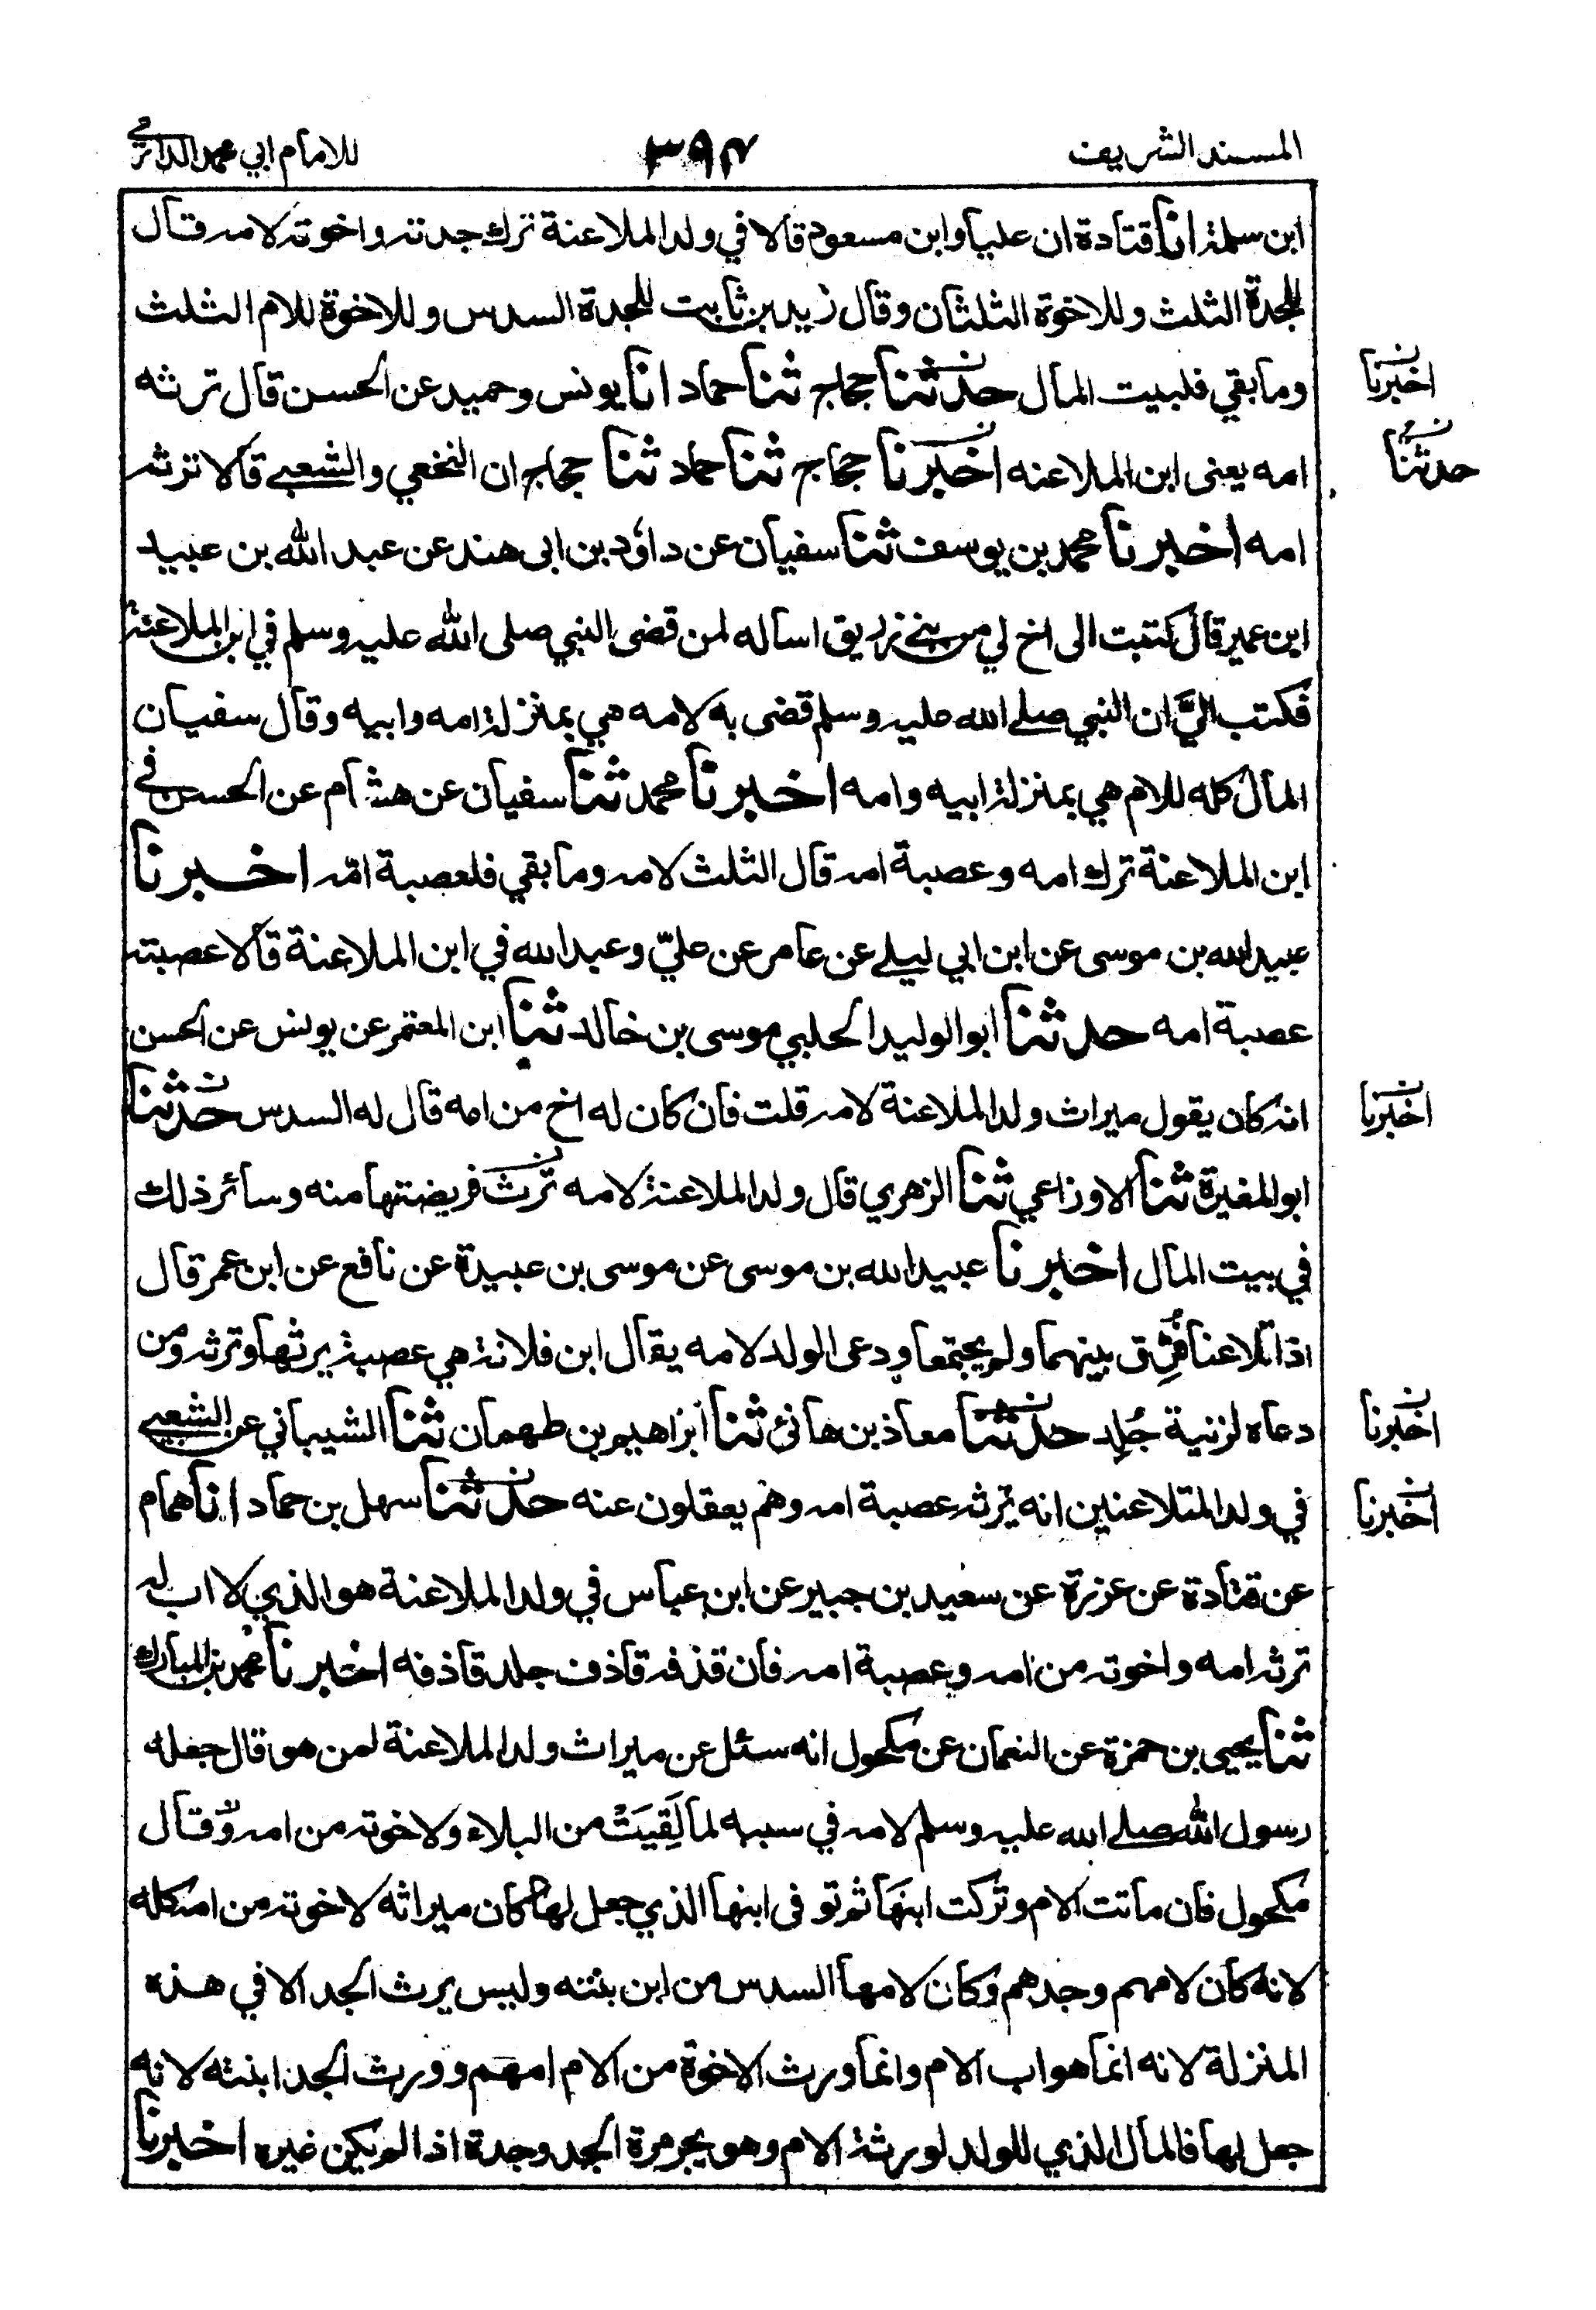 المسند الشريف ٣٩٤ للامام ابي محمد الدارمي
ابن سلمة انا قتادة ان عليا وابن مسعود قالا في ولد الملاعنة ترك جدته واخوته لامه قال
للجدة الثلث وللاخوة الثلثان وقال زيد بن ثابت للجدة السدس وللاخوة للام الثلث
وما بقي فلبيت المال حدثنا حجاج ثنا حماد انا يونس وحميد عن الحسن قال ترثه
اخبرنا
امه يعنى ابن الملاعنه اخبرنا حجاج ثنا حماد ثنا حجاج ان النخعي والشعبي قالا ترثه
حدثنا
امه اخبرنا محمد بن يوسف ثنا سفيان عن داود بن ابى هند عن عبد الله بن عبيد
ابن عمير قال كتبت الى اخ لي من بني زريق اساله لمن قضى النبي صلى الله عليه وسلم في ابن الملاعنة
فكتب اليَّ ان النبي صلے الله عليه وسلم قضى به لامه هي بمنزلة امه وابيه وقال سفيان
المال كله للام هي بمنزلة ابيه وامه اخبرنا محمد ثنا سفيان عن هشام عن الحسن في
ابن الملاعنة ترك امه وعصبة امه قال الثلث لامه وما بقي فلعصبة امّه اخبرنا
عبيد الله بن موسى عن ابن ابي ليلے عن عامر عن عليّ وعبد الله في ابن الملاعنة قالا عصبته
عصبة امه حدثنا ابو الوليد الحلبي موسى بن خالد ثنا ابن المعتمر عن يونس عن الحسن
انه كان يقول ميراث ولد الملاعنة لامه قلت فان كان له اخ من امه قال له السدس حدثنا
اخبرنا
ابو المغيرة ثنا الاوزاعي ثنا الزهري قال ولد الملاعنة لامه ترث فريضتها منه وسائر ذلك
في بيت المال اخبرنا عبيد الله بن موسى عن موسى بن عبيدة عن نافع عن ابن عمر قال
اذا تلاعنا فُرِّق بينهما ولم يجتمعا ودعى الولد لامه يقال ابن فلانة هي عصبة يرثها وترثه ومن
دعاه لزنية جُلِد حدثنا معاذ بن هانئ ثنا ابراهيم بن طهمان ثنا الشيباني عن الشعبي
اخبرنا
في ولد المتلاعنين انه ترثه عصبة امه وهم يعقلون عنه حدثنا سهل بن حماد انا همام
اخبرنا
عن قتادة عن عزرة عن سعيد بن جبير عن ابن عباس في ولد الملاعنة هو الذي لا اب له
ترثه امه واخوته من امه وعصبة امه فان قذفه قاذف جلد قاذفه اخبرنا محمد بن المبارك
ثنا يحيى بن حمزة عن النعمان عن مكحول انه سئل عن ميراث ولد الملاعنة لمن هو قال جعله
رسول الله صلے الله عليه وسلم لامه في سببه لما لَقِيَتْ من البلاء ولاخوته من امه وقال
مكحول فان ماتت الام وتركت ابنَها ثم توفى ابنها الذي جعل لها كان ميراثه لاخوته من امه كله
لانه كان لامهم وجدهم وكان لامها السدس من ابن بنته وليس يرث الجد الا في هذه
المنزلة لانه انما هو اب الام وانما ورث الاخوة من الام امهم وورث الجد ابنته لانه
جعل لها فالمال الذي للولد لورثة الام وهو يحرمرة الجد وجدة اذا لم يكن غيره اخبرنا